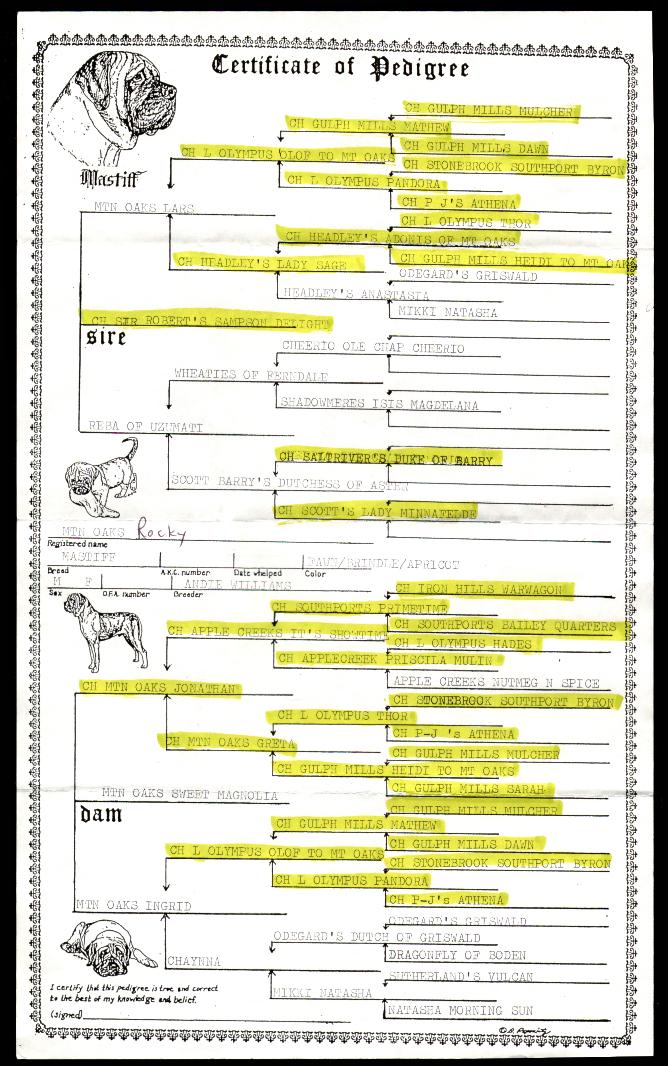 Certificate of Pedigree
Mastiff
CH GULPH MILLS MULCHER
CH GULPH MILLS MATHEW
CH GULPH MILLS DAWN
CH L OLYMPUS OLOF TO MT OAKS
CH STONEBROOK SOUTHPORT BYRON
CH L OLYMPUS PANDORA
CH P J'S ATHENA
MTN OAKS LARS
CH L OLYMPUS THOR
CH HEADLEY'S ADONIS OF MT OAKS
CH GULPH MILLS HEIDI TO MT OAKS
CH HEADLEY'S LADY SAGE
ODEGARD'S GRISWALD
HEADLEY'S ANASTASIA
MIKKI NATASHA
CH SIR ROBERT'S SAMPSON DELIGHT
sire
CHEERIO OLE CHAP CHEERIO
WHEATIES OF FERNDALE
SHADOWMERES ISIS MAGDELANA
REBA OF UZUMATI
CH SALTRIVER'S DUKE OF BARRY
SCOTT BARRY'S DUTCHESS OF ASTER
CH SCOTT'S LADY MINNAFELDE
MTN OAKS Rocky
Registered name
MASTIFF FAWN/BRINDLE/APRICOT
Breed A.K.C. number Date whelped Color
M F ANDIE WILLIAMS
Sex O.F.A. number Breeder
CH IRON HILLS WARWAGON
CH SOUTHPORTS PRIMETIME
CH SOUTHPORTS BAILEY QUARTERS
CH APPLE CREEKS IT'S SHOWTIME
CH L OLYMPUS HADES
CH APPLECREEK PRISCILA MULIN
APPLE CREEKS NUTMEG N SPICE
CH MTN OAKS JONATHAN
CH STONEBROOK SOUTHPORT BYRON
CH L OLYMPUS THOR
CH P-J 's ATHENA
CH MTN OAKS GRETA
CH GULPH MILLS MULCHER
CH GULPH MILLS HEIDI TO MT OAKS
CH GULPH MILLS SARAH
MTN OAKS SWEET MAGNOLIA
dam
CH GULPH MILLS MULCHER
CH GULPH MILLS MATHEW
CH GULPH MILLS DAWN
CH L OLYMPUS OLOF TO MT OAKS
CH STONEBROOK SOUTHPORT BYRON
CH L OLYMPUS PANDORA
CH P-J's ATHENA
MTN OAKS INGRID
ODEGARD'S GRISWALD
ODEGARD'S DUTCH OF GRISWALD
DRAGONFLY OF BODEN
CHAYNNA
SUTHERLAND'S VULCAN
MIKKI NATASHA
NATASHA MORNING SUN
I certify that this pedigree is true and correct
to the best of my knowledge and belief.
(signed)